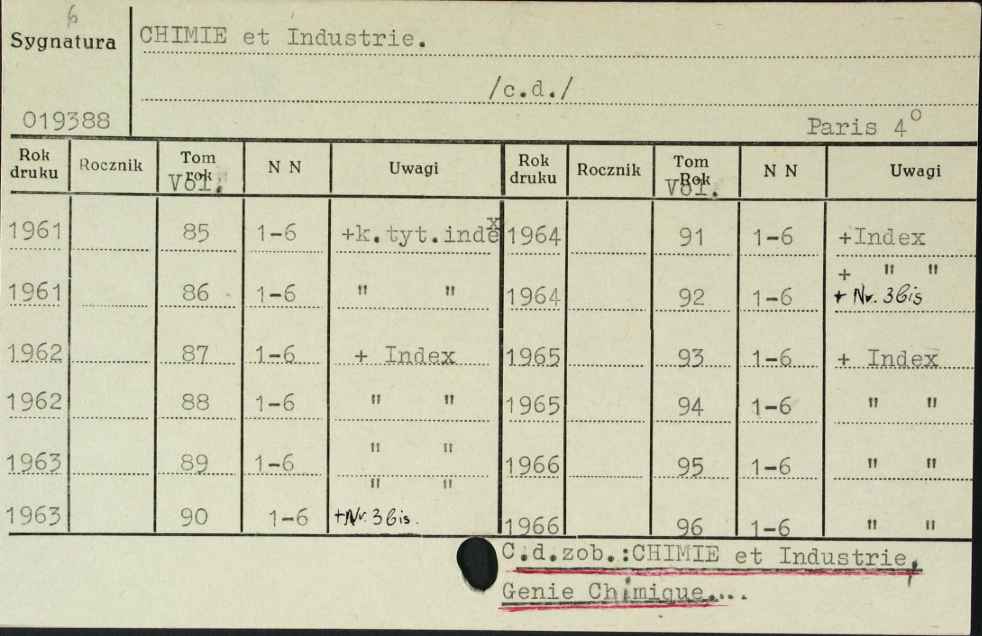 6
Sygnatura CHIMIE et Industrie.
/c.d./
019388 Paris 4°
Rok druku Rocznik Tom rok Vol. N N Uwagi Rok druku Rocznik Tom Rok Vol. N N Uwagi
1961 85 1-6 +k.tyt.index 1964 91 1-6 +Index
1961 86 1-6 " " 1964 92 1-6 + " " + Nr. 3 bis
1962 87 1-6 + Index 1965 93 1-6 + Index
1962 88 1-6 " " 1965 94 1-6 " "
1963 89 1-6 " " 1966 95 1-6 " "
1963 90 1-6 " " +Nr. 3 bis. 1966 96 1-6 " "
C.d.zob.:CHIMIE et Industrie,
Genie Chimique....